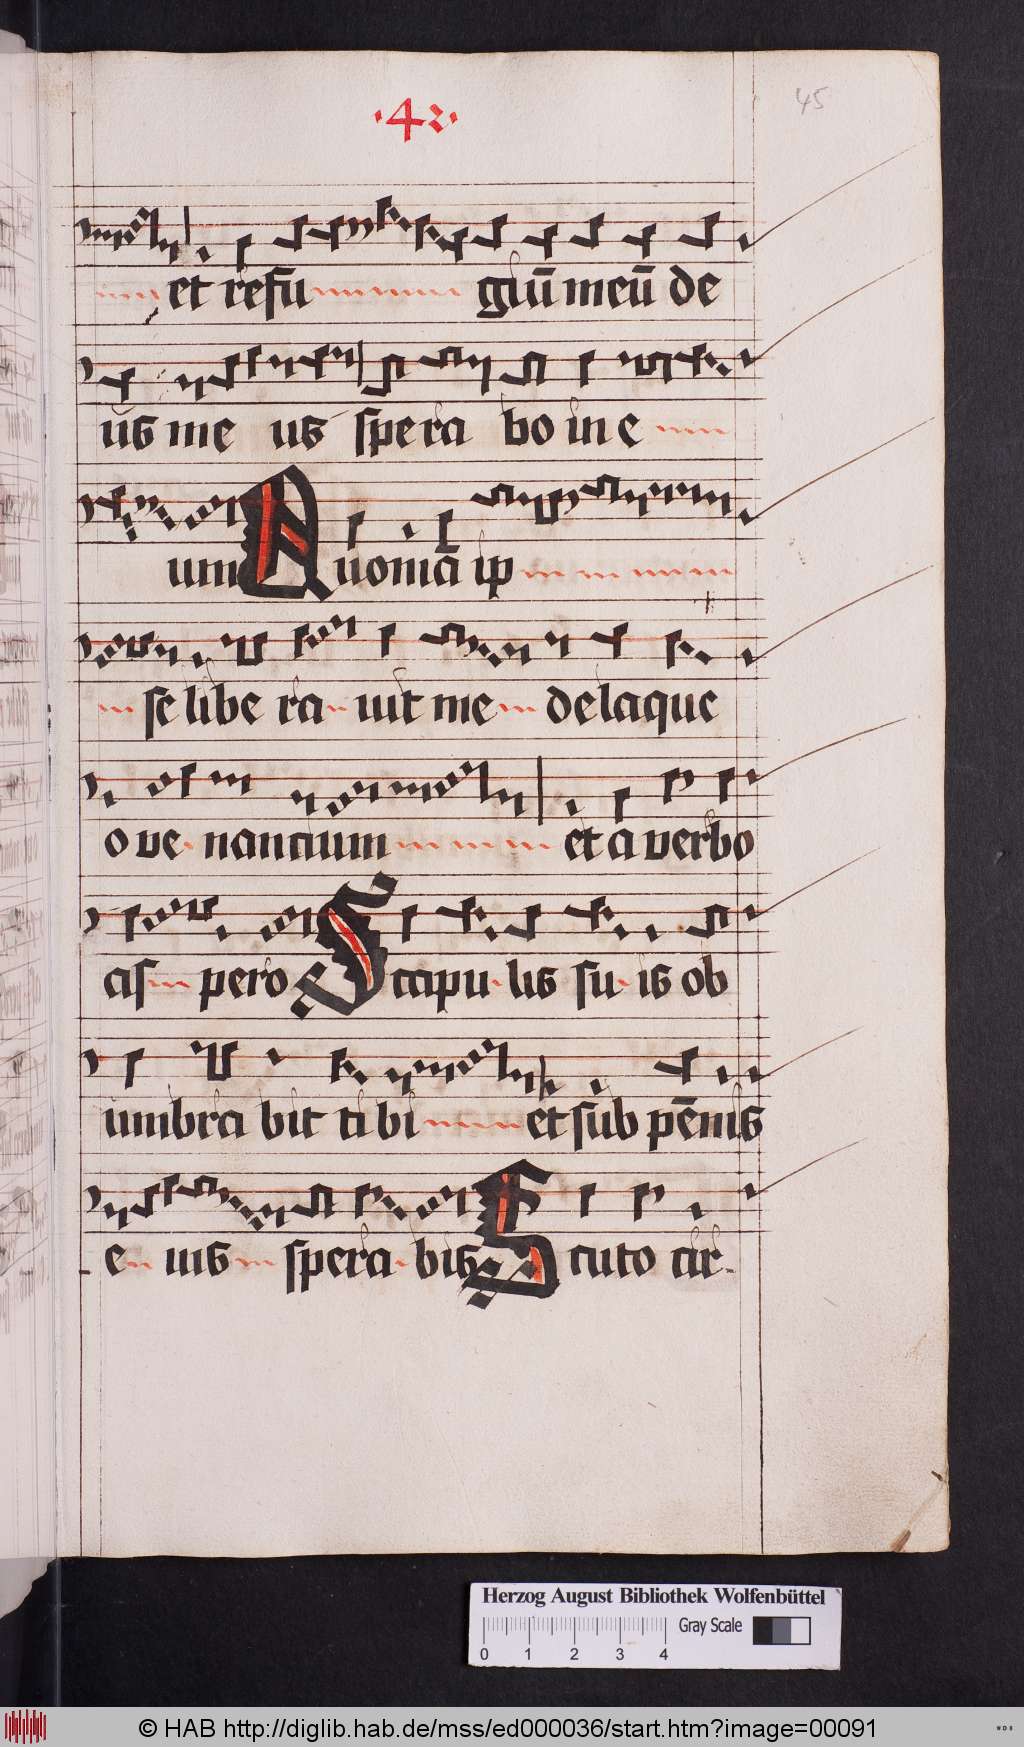 ·42·
45
et refu giū meū de
us me us spera bo in e
um Quoniā ip
se libe ra uit me de laque
o ve nancium et a verbo
as pero Scapu lis su is ob
umbra bit ti bi et sub pēnis
e ius spera bis Scuto cir-
Herzog August Bibliothek Wolfenbüttel
Gray Scale
0 1 2 3 4
© HAB http://diglib.hab.de/mss/ed000036/start.htm?image=00091